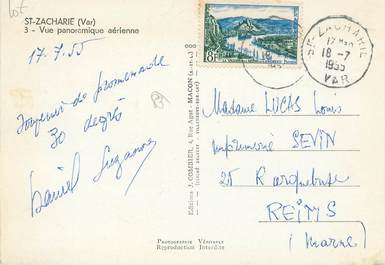 Lot
ST-ZACHARIE (Var)
3 - Vue panoramique aérienne
17.7.55
Souvenir de promenade
30 degrés
Daniel Suzanne
Editions J. COMBIER, 4, Rue Agut - MACON (S.-et-L.)
PHOTOGRAPHIE VÉRITABLE
Reproduction Interdite
8F
ST-ZACHARIE
18-7
1955
VAR
Madame LUCAS Louis
imprimerie SEVIN
25 R
REIMS
(Marne)